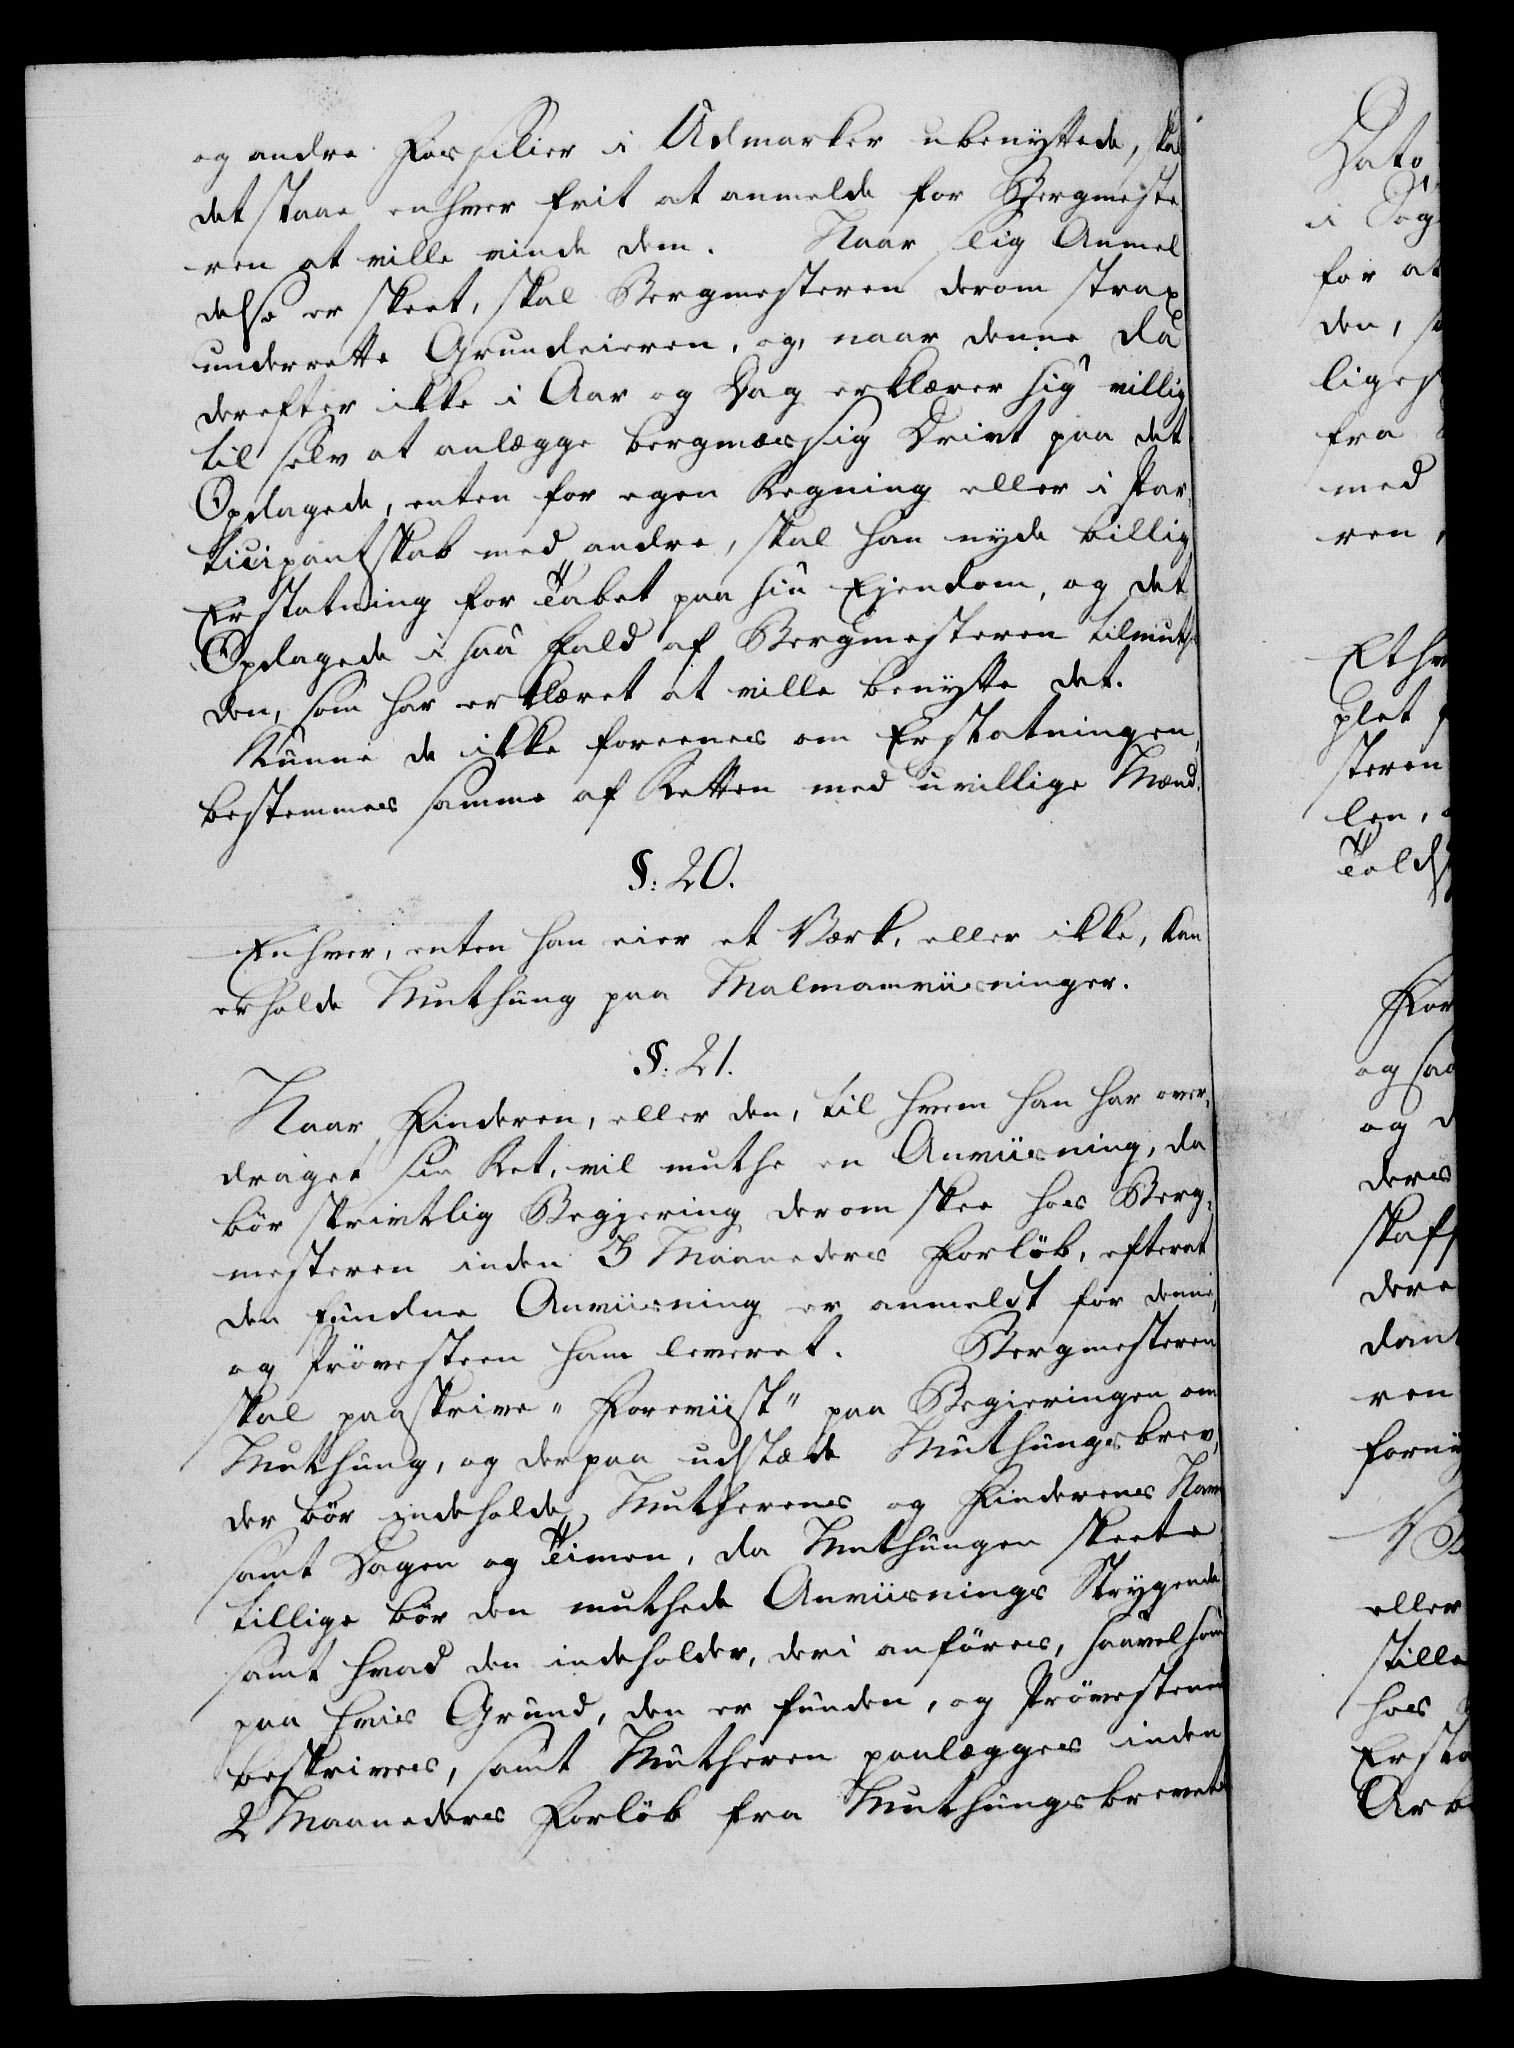 og andre Fossilier i Udmarker ubenyttede, skal
det staae enhver frit at anmelde for Bergmeste
ren at ville vinde dem. Naar slig Anmel
delse er skeet, skal Bergmesteren derom strax
underrette Grundeieren, og, naar denne da
derefter ikke i Aar og Dag erklærer sig villig
til selv at anlægge bergmæssig Drivt paa det
Opdagede, enten for egen Regning eller i Par,
ticipantskab med andre, skal han nyde billig
Erstatning for Tabet paa sin Ejendom, og det
Opdagede i saa Fald af Bergmesteren tilmuthes
den, som har erklæret at ville benytte det.
Kunne de ikke foreenes om Erstatningen,
bestemmes samme af Retten med uvillige Mænd.
§: 20.
Enhver, enten han eier et Værk, eller ikke, kan
erholde Muthung paa Malmanviisninger.
§: 21.
Naar Finderen, eller den, til hvem han har over,
draget sin Ret, vil muthe en Anviisning, da
bör skrivtlig Begjering derom skee hos Berg-
mesteren inden 3 Maaneders Forlöb, efterat
den fundne Anviisning er anmeldt for denne,
og Prövesteen ham leveret. Bergmesteren
skal paaskrive "Foreviist" paa Begieringen om
Muthung, og derpaa udstæde Muthungsbrev,
der bör indeholde Mutherens og Finderens Navn
samt Dagen og Timen, da Muthungen skeete,
tillige bör den muthede Anviisnings Strygende
samt hvad den indeholder, deri anföres, saavelsom
paa hvis Grund, den er funden, og Prövestenen
beskrives, samt Mutheren paalægges inden
2 Maaneders Forlöb fra Muthungsbrevets
Dato
i Dag
for at
den, s
liges
fra
med
ren,
Ethv
plet
steren
len,
Told
For
og saa
og d
deres
skaff
dere
dan
ren
forny
eller
stille
hos
Ersta
Arb